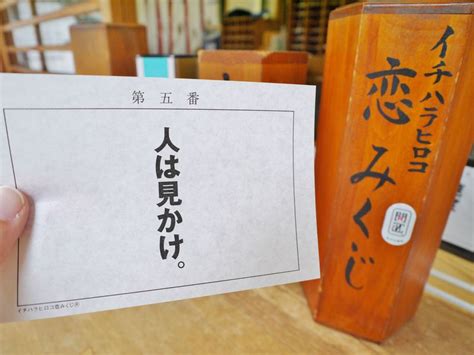 第五番
人は見かけ。
イチハラヒロコ恋みくじ®
イチハラヒロコ
恋みくじ